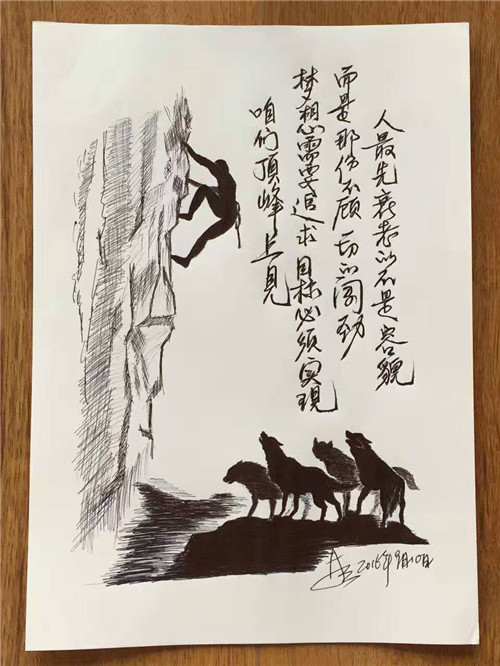 人最先衰老的不是容貌
而是那份不顾一切的闯劲
梦想需要追求 目标必须实現
咱们顶峰上見
2016年9月10日